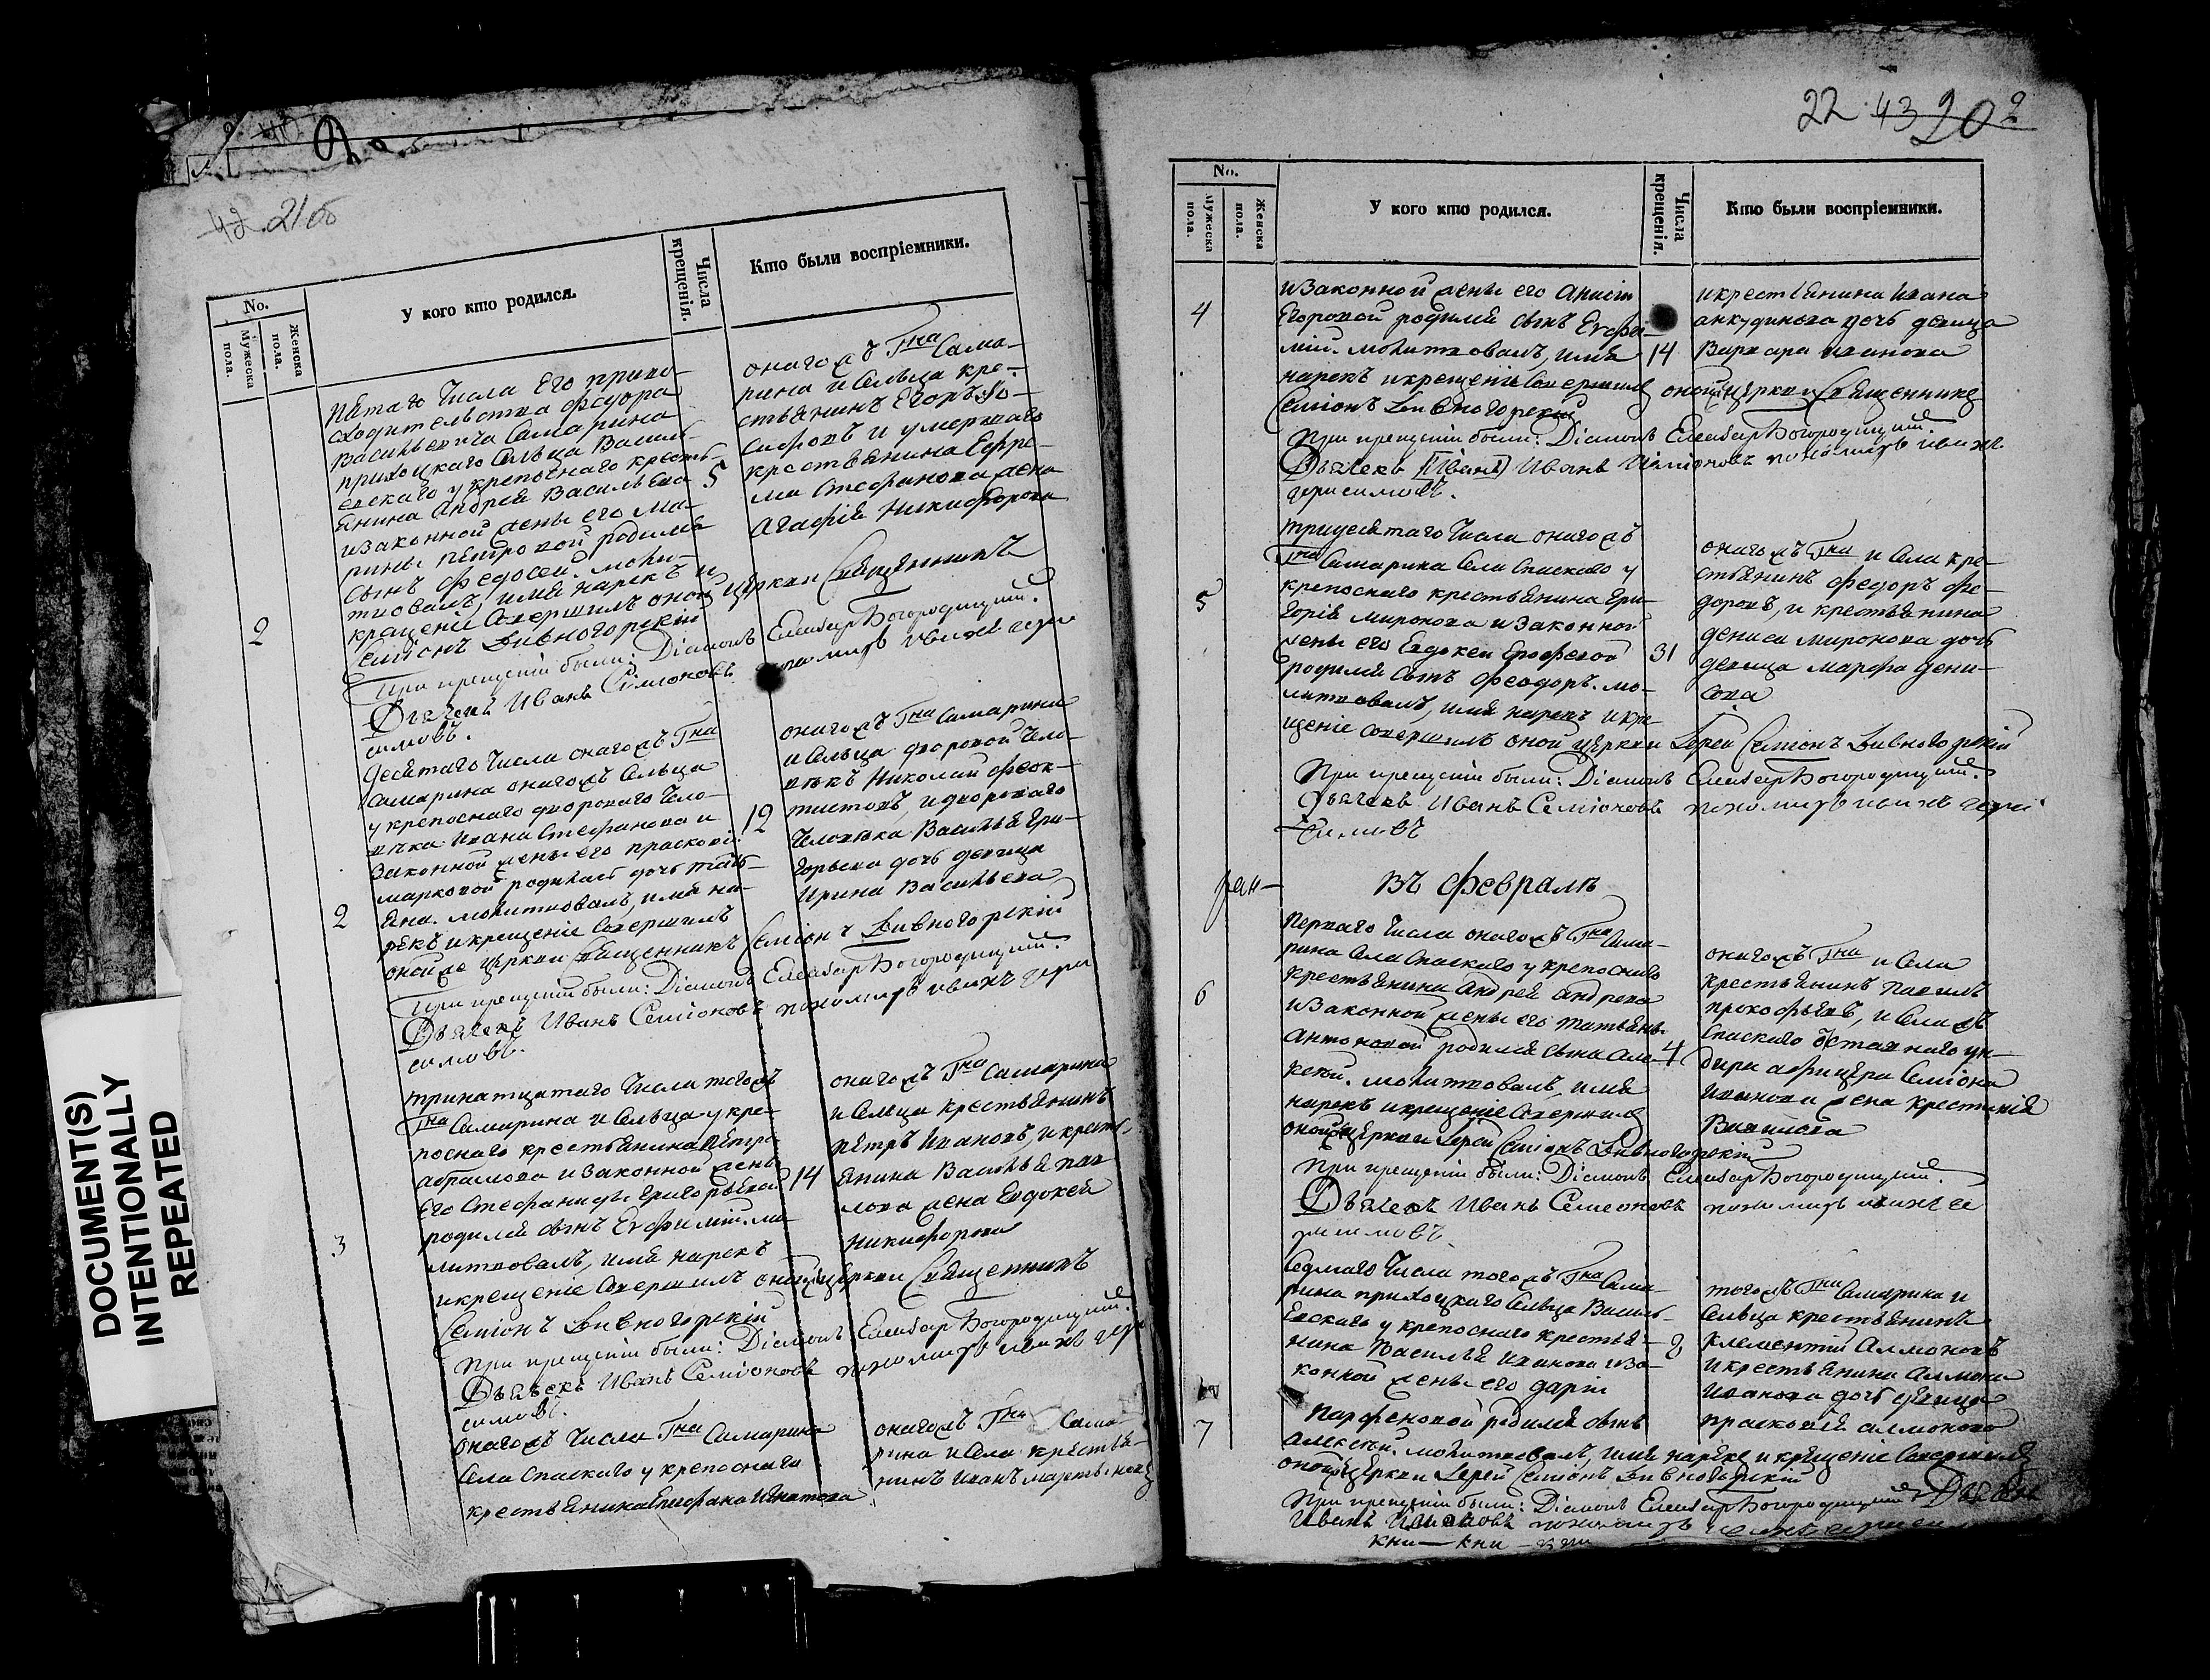 42 21об
No.
Мужеска пола.
Женска пола.
У кого кто родился.
Числа крещенія.
Кто были воспріемники.
Пятаго числа Его прево-
сходительства Феодора
Васильевича Самарина
приходскаго сельца Василь-
евскаго у крепоснаго кресть-
янина Андрея Васильева
изаконной жены его Ма-
рины Петровой родился
сынъ Федосей. моли-
твовалъ, имя нарекъ и
крещеніе совершилъ оной церкви Священникъ
Семіонъ Дивногорскій
2
5
оногожъ Гна Сама-
рина и сельца кре-
стьянинъ Егоръ Іо-
сифовъ и умершаго
крестьянина Ефре-
ма Стефанова жена
Агафія Никифорова
При крещеніи были: Діаконъ Елеазаръ Богородицкій.
Дьячекъ Иванъ Симіоновъ
симовъ.
Десятаго числа оногожъ Гна
Самарина оногожъ сельца
у крепоснаго двороваго чело-
века Ивана Стефанова и
законной жены его Прасковіи
Марковой родилась дочь Тать-
яна. молитвовалъ, имя на-
рекъ и крещеніе совершилъ
онойже церкви Священникъ Семіонъ Дивногорскій
2
12
оногожъ Гна Самарина
и сельца дворовой чело-
векъ Николай Феок-
тистовъ, и двороваго
человека Василья Гри-
горьева дочь девица
Ирина Васильева
При крещеніи были: Діаконъ Елеазаръ Богородицкій.
Дьячекъ Иванъ Семіоновъ пономарь
симовъ.
тринатцатаго числа тогожъ
Гна Самарина и сельца у кре-
поснаго крестьянина Петра
Абрамова и законной жены
его Стефаниды Григорьевой
родился сынъ Евфимій. мо-
литвовалъ, имя нарекъ
и крещеніе совершилъ оной церкви Священникъ
Семіонъ Дивногорскій
3
14
оногожъ Гна Самарина
и сельца крестьянинъ
Петръ Ивановъ, и кресть-
янина Василья Пав
лова жена Евдокея
Никифорова
При крещеніи были: Діаконъ Елеазаръ Богородицкій.
Дьячекъ Иванъ Семіоновъ пономарь
симовъ.
оногожъ числа Гна Самарина
села Спаскаго у крепоснаго
крестьянина Епифана Игнатова
оногожъ Гна Сама
рина и села крестья-
нинъ Иванъ Мартыновъ
22 43 20
No.
Мужеска пола.
Женска пола.
У кого кто родился.
Числа крещенія.
Кто были воспріемники.
изаконной жены его Анисьи
Егоровой родился сынъ Евфи-
мій. молитвовалъ, имя
нарекъ и крещеніе совершилъ онойже церкви Священникъ
Семіонъ Дивногорскій
4
14
и крестьянина Ивана
Анкудинова дочь девица
Варвара Иванова
При крещеніи были: Діаконъ Елеазаръ Богородицкій.
Дьячекъ Иванъ Симіоновъ пономарь
герасимовъ.
тридесятаго числа оногожъ
Гна Самарина села Спаскаго у
крепоснаго крестьянина Гри-
горія Миронова изаконной
жены его Евдокеи Ерофеевой
родился сынъ Феодоръ. мо-
литвовалъ, имя нарекъ и кре-
щеніе совершилъ оной церкви Іерей Семіонъ Дивногорскій
5
31
оногожъ Гна и села кре-
стьянинъ Федоръ Фе-
доровъ, и крестьянина
Дениса Миронова дочь
девица Марфа Дени-
сова
При крещеніи были: Діаконъ Елеазаръ Богородицкій.
Дьячекъ Иванъ Семіоновъ пономарь
симовъ
въ Февралѣ
Перваго числа оногожъ Гна Сама-
рина села Спаскаго у крепоснаго
крестьянина Андрея Андреева
изаконной жены его Татьяны
Антоновой родился сынъ Але-
ксей. молитвовалъ, имя
нарекъ и крещеніе совершилъ
онойже церкви Іерей Семіонъ Дивногорскій
6
4
оногожъ Гна и села
крестьянинъ Павелъ
Прокофьевъ, и села
Спаскаго отставнаго ун-
дира афицера Семіона
Иванова жена Крестинія
Вавилова
При крещеніи были: Діаконъ Елеазаръ Богородицкій.
Дьячекъ Иванъ Семеоновъ пономарь
Седмаго числа тогожъ Гна Сама-
рина приходскаго сельца Василь-
евскаго у крепоснаго крестья-
нина Василья Иванова иза-
конной жены его Даріи
Парфеновой родился сынъ
Алексей. молитвовалъ, имя нарекъ и крещеніе совершилъ
онойже церкви Іерей Семіонъ Дивногорскій
7
8
тогожъ Гна Самарина и
сельца крестьянинъ
Клементій Алмоновъ
и крестьянина Алмона
Иванова дочь девица
Прасковья Алмонова
При крещеніи были: Діаконъ Елеазаръ Богородицкій Дьячекъ
Иванъ пономарь
DOCUMENT(S)
INTENTIONALLY
REPEATED